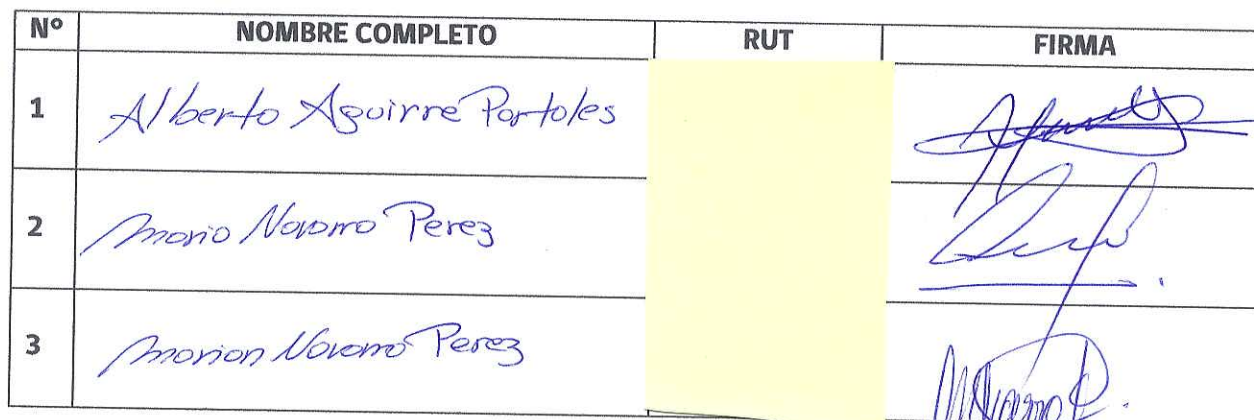 Nº NOMBRE COMPLETO RUT FIRMA
1 Alberto Aguirre Portoles
2 Mario Navarro Perez
3 Marion Navarro Perez